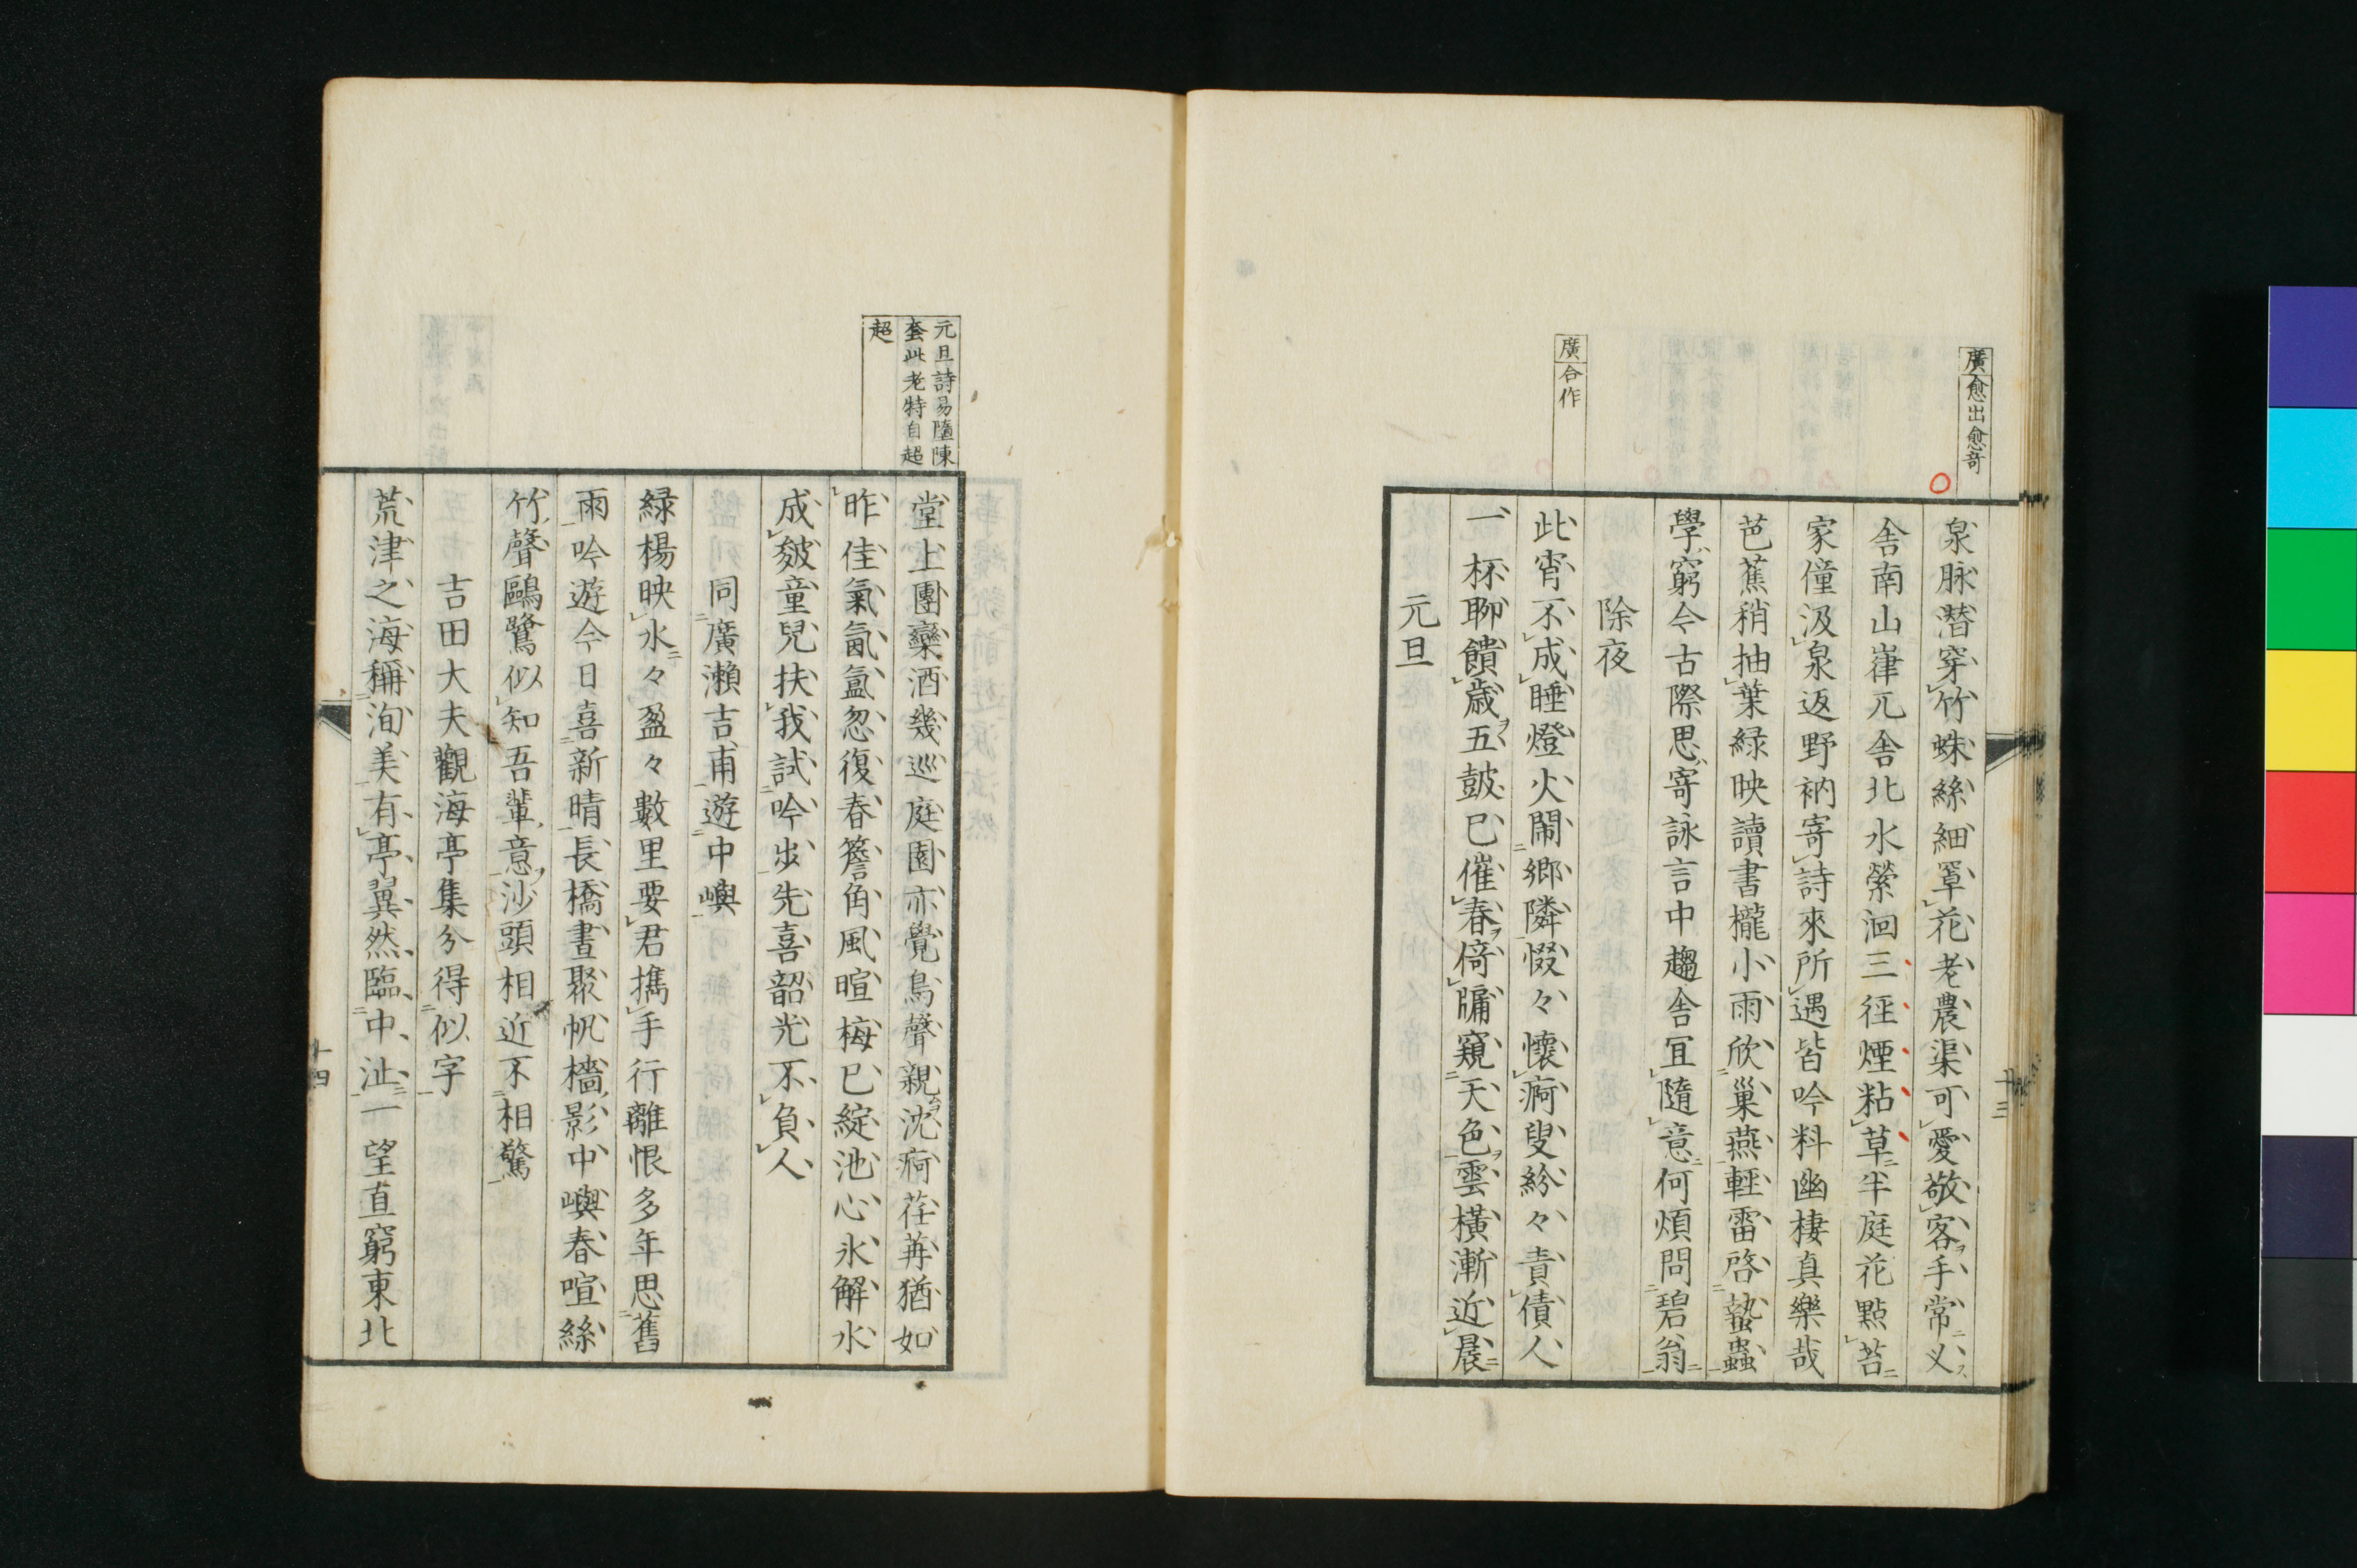 廣愈出愈奇
泉脉潜穿竹蛛絲細罩花老農渠可愛敬客手常叉
舎南山嵂兀舎北水縈洄三徑煙粘草半庭花點苔
家僮汲泉返野衲寄詩來所遇皆吟料幽棲真樂哉
芭蕉稍抽葉緑映讀書櫳小雨欣巢燕輕雷啓蟄蟲
學窮今古際思寄詠言中趨舎冝隨意何煩問碧翁
除夜
廣合作
此宵不成睡燈火閙鄉隣惙々懷痾叟紛々責債人
一杯聊饋歳五皷已催春倚牖窺天色雲橫漸近晨
元旦
十三
元旦詩易墮陳
套此老特自超
超
堂上團欒酒幾巡庭園亦覺鳥聲親沈痾荏苒猶如
昨佳氣氤氳忽復春簷角風暄梅已綻池心氷解水
成皴童兒扶我試吟步先喜韶光不負人
同廣瀨吉甫遊中嶼
緑楊映水々盈々數里要君擕手行離恨多年思舊
雨吟遊今日喜新晴長橋晝聚帆檣影中嶼春喧絲
竹聲鷗鷺似知吾輩意沙頭相近不相驚
吉田大夫觀海亭集分得似字
荒津之海稱洵美有亭翼然臨中沚一望直窮東北
十四